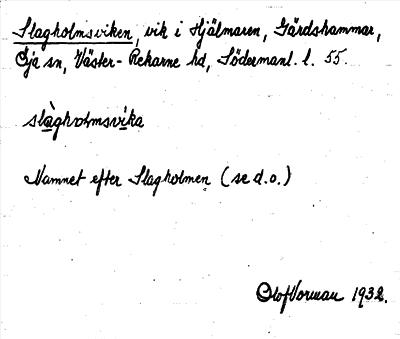 Slagholmsviken, vik i Hjälmaren, Gärdshammar,
Öja sn, Väster-Rekarne hd, Södermanl. l. 55.
slàgholmsvika
Namnet efter Slagholmen (se d.o.)
Olof Vorman 1932.